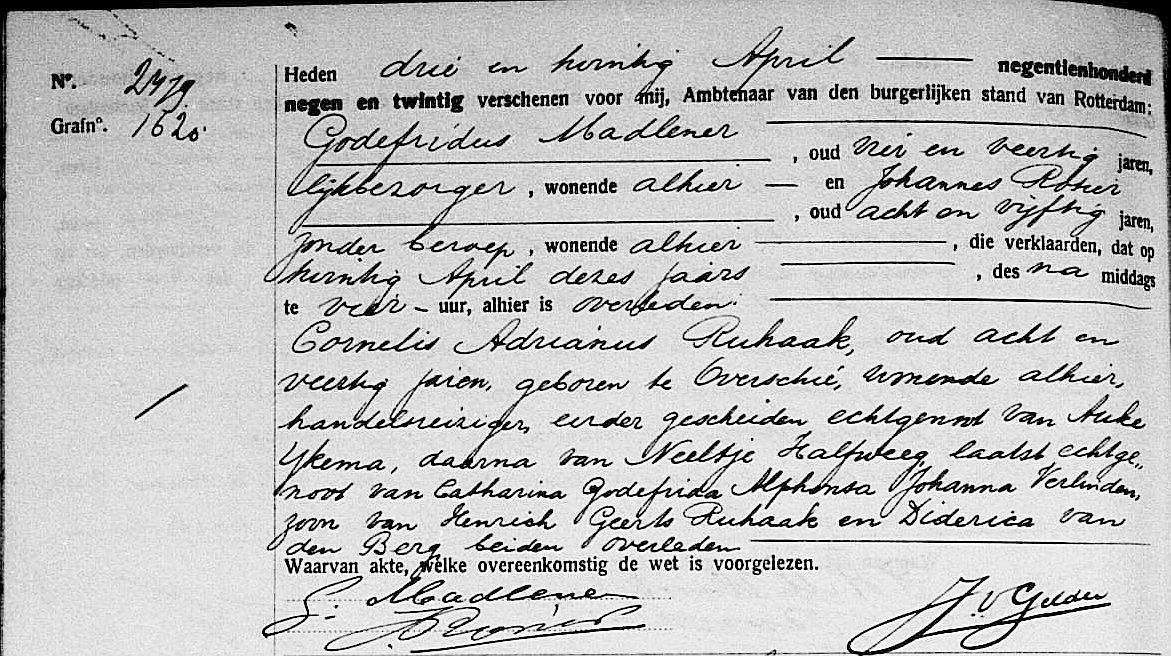 Nº. 2479
Grafnº. 1620.
Heden drie en twintig April negentienhonderd
negen en twintig verschenen voor mij, Ambtenaar van den burgerlijken stand van Rotterdam:
Godefridus Madlener
, oud vier en veertig jaren,
lijkbezorger, wonende alhier — en Johannes Rosier
, oud acht en vijftig jaren,
zonder beroep, wonende alhier , die verklaarden, dat op
twintig April dezes jaars , des na middags
te vier – uur, alhier is overleden:
Cornelis Adrianus Ruhaak, oud acht en
veertig jaren, geboren te Overschie, wonende alhier,
handelsreiziger, eerder gescheiden echtgenoot van Auke
Ykema, daarna van Neeltje Halfweeg, laatst echtge„
noot van Catharina Godefrida Alphonsa Johanna Verlinden,
zoon van Henrich Geerts Ruhaak en Diderica van
den Berg, beiden overleden
Waarvan akte, welke overeenkomstig de wet is voorgelezen.
G. Madlener
J. v Gelder